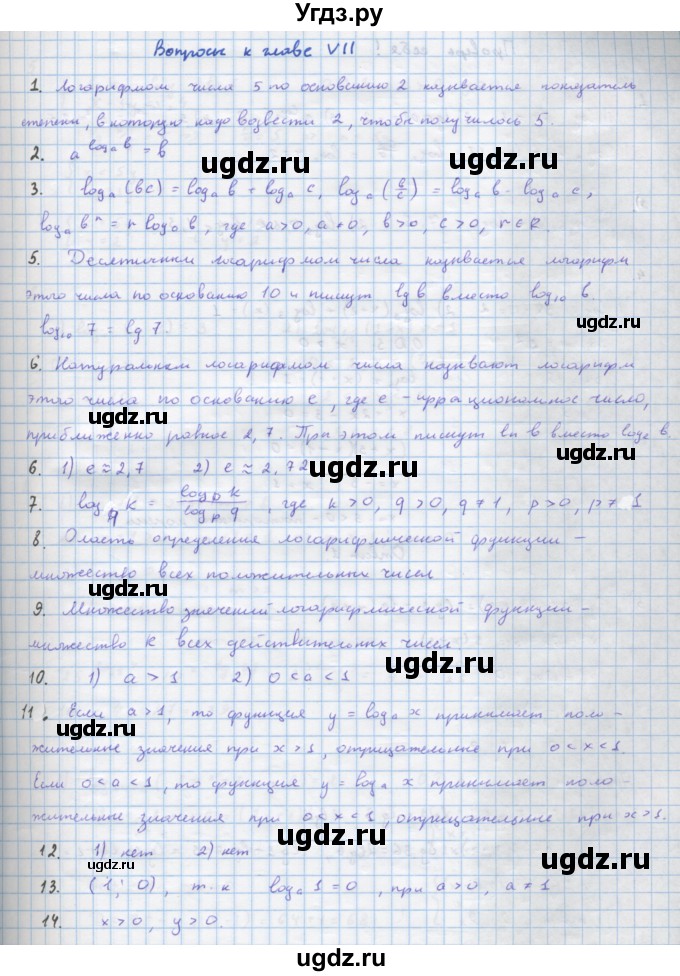 Угдз.ру
Вопросы к главе VII
1. Логарифмом числа 5 по основанию 2 называется показатель
степени, в которую надо возвести 2, чтобы получилось 5.
2. a^(log_a b) = b
ugdz.ru
3. log_a (bc) = log_a b + log_a c, log_a (b/c) = log_a b - log_a c,
log_a b^r = r log_a b, где a>0, a≠0, b>0, c>0, r∈R.
ugdz.ru
5. Десятичным логарифмом числа называется логарифм
этого числа по основанию 10 и пишут lg b вместо log_10 b.
ugdz.ru
log_10 7 = lg 7.
6. Натуральным логарифмом числа называют логарифм
этого числа по основанию e, где e - иррациональное число,
ugdz.ru
приближенно равное 2,7. При этом пишут ln b вместо log_e b.
6. 1) e ≈ 2,7 2) e ≈ 2,72
ugdz.ru
7. log_q k = log_p k / log_p q, где k>0, q>0, q≠1, p>0, p≠1
8. Оласть определения логарифмической функции -
множество всех положительных чисел
ugdz.ru
9. Множество значений логарифмической функции -
множество R всех действительных чисел
ugdz.ru
10. 1) a > 1 2) 0 < a < 1
11. Если a>1, то функция y = log_a x принимает поло-
ugdz.ru
жительные значения при x>1, отрицательные при 0<x<1.
Если 0<a<1, то функция y = log_a x принимает поло-
жительные значения при 0<x<1, отрицательные при x>1.
ugdz.ru
12. 1) нет 2) нет
ugdz.ru
13. (1; 0), т.к log_a 1 = 0, при a>0, a≠1
14. x>0, y>0.
ugdz.ru